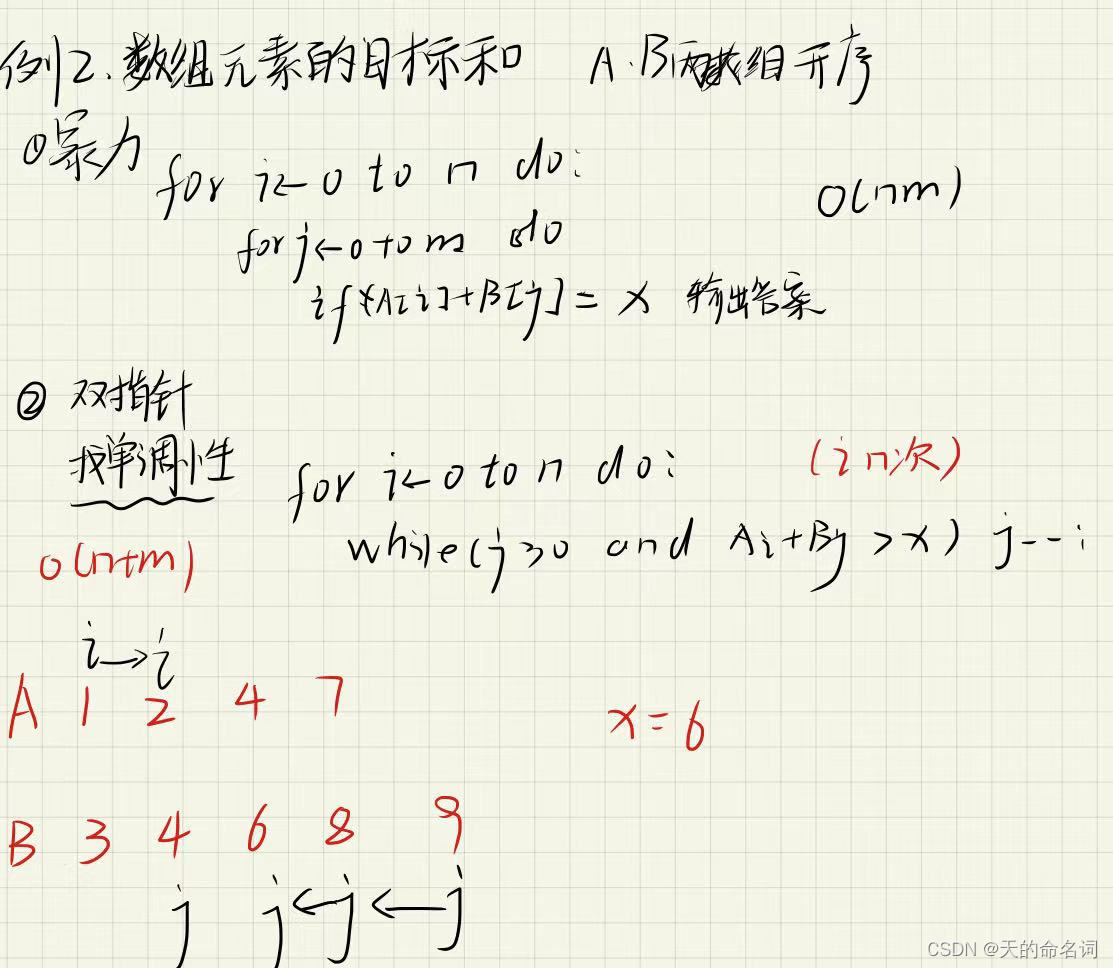 例2.数组元素的目标和 A.B两数组升序
①暴力
for i←0 to n do:
O(nm)
for j←0 to m do
if A[i]+B[j]=x 输出答案
② 双指针
找单调性
for i←0 to n do:
(i n次)
while(j≥0 and Ai+Bj>x) j--;
O(n+m)
i→i
A 1 2 4 7
x=6
B 3 4 6 8 9
j j←j←j
CSDN @天的命名词